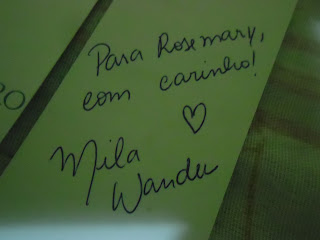 RO
Para Rosemary,
com carinho!
♡
Mila
Wander